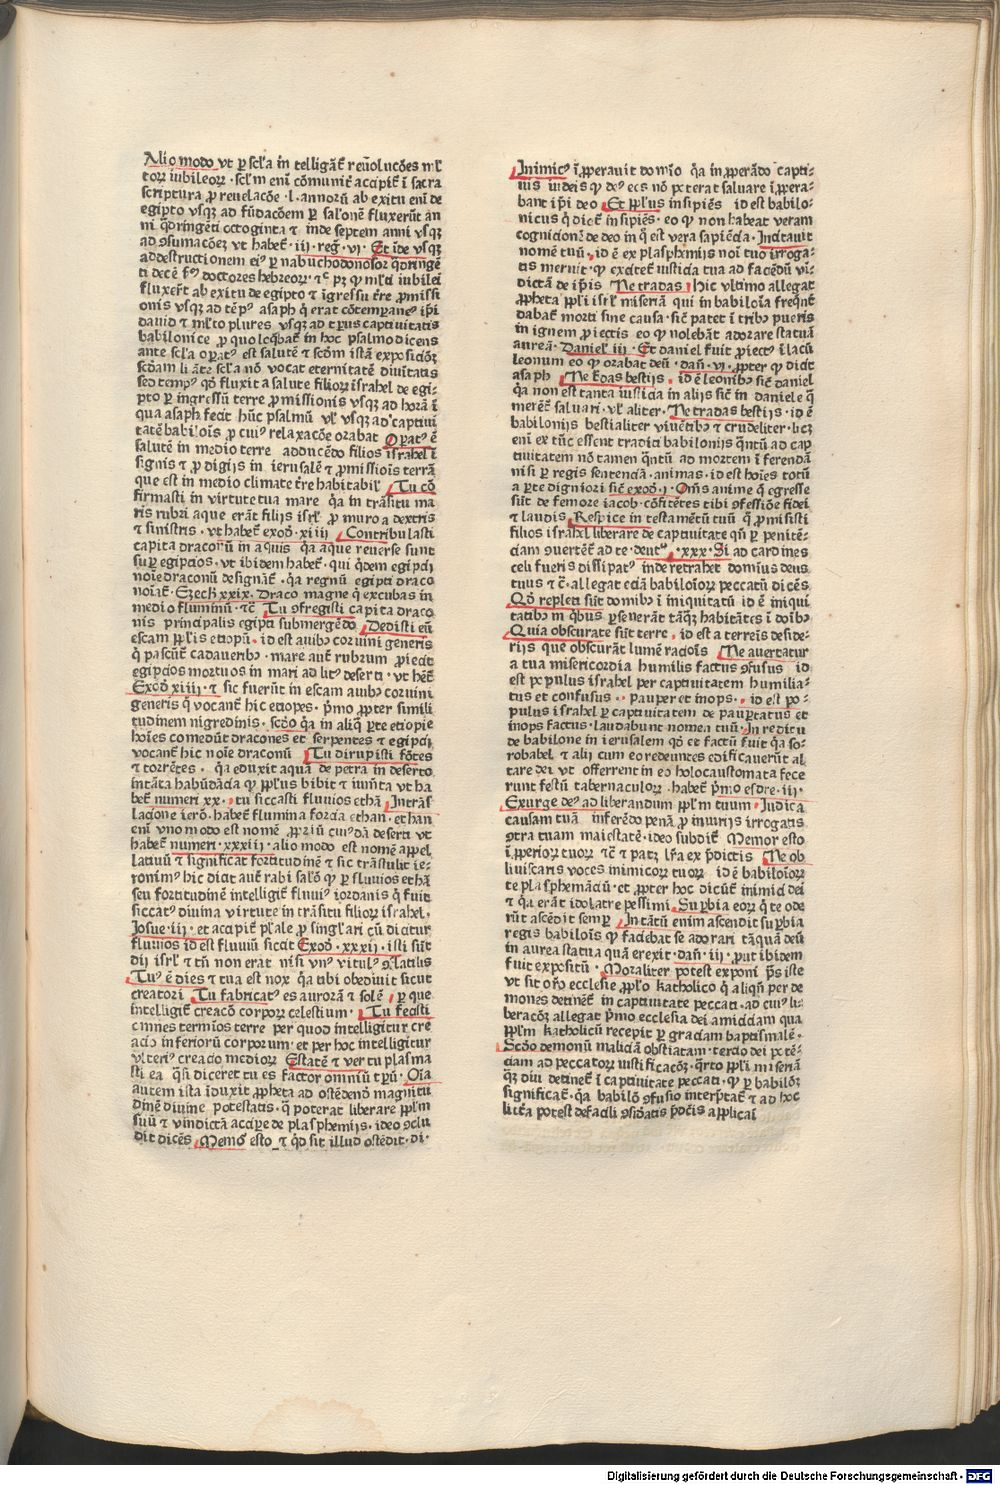 Alio modo vt ꝑ scl'a in telligāt̄ reuolucōes ml'
toꝝ iubileoꝝ · scl'm eni cōmunit̄ accipit̄ ī sacra
scriptura ꝓ reuelacōe · l · annoꝝ ab exitu eni de
egipto vsqꝫ ad fūdacōem ꝑ salonē fluxerūt an
ni q̄dringēti octoginta ⁊ inde septem anni vsqꝫ
ad ꝯsumacōeꝫ vt habet̄ · iij · reg̅ · vj · Et īde vsqꝫ
ad destructionem eiꝰ ꝑ nabuchodonosor q̄dringē
ti decē
fluxer̄t ab exitu de egipto ⁊ īgressu t̄re ꝓmissi
onis vsqꝫ ad tēpꝰ asaph q̄ erat cōtemꝑaneꝰ ip̄i
dauid ⁊ ml'to plures vsqꝫ ad tꝑus captiuitatis
babilonice ꝓ quo loq̄bat̄ in hoc psalmo dicens
ante scl'a oꝑatꝰ est salutē ⁊ scd̄m istā expositōꝫ
scd̄am li āte scl'a nō vocat eternitatē diuitatis
sed tempꝰ qd̄ fluxit a salute filioꝝ israhel de egi-
pto ꝑ ingressū terre ꝓmissionis vsqꝫ ad horā ī
qua asaph fecit hūc psalmū vl' vsqꝫ ad captiui
tatē babilois ꝓ cuiꝰ relaxacōe orabat Oꝑatꝰ ē
salutē in medio terre adducēdo filios israhel ī
signis ⁊ ꝓdigijs in ierusalē ⁊ ꝓmissiois terrā
que est in medio climate t̄re habitabil' Tu cō
firmasti in virtute tua mare q̄a in trāsitu ma
ris rubri aque erāt filijs isrl' ꝓ muro a dextris
⁊ sinistris · vt habet̄ exod̄ · xiiij Contribulasti
capita draconū in aquis q̄a aque reuerse sunt
suꝑ egipcios · vt ibidem habet̄ · qui q̄dem egipcij
noīe draconū designāt̄ · q̄a regnū egipti draco
noīat̄ · Ezech xxix · Draco magne q̄ excubas in
medio fluminū · ⁊c̄ Tu ꝯfregisti capita draco
nis principalis egipti submergēdo Dedisti eū
escam pplīs etiopū · id est auibꝫ coruini generis
q̄ pascūt̄ cadaueribꝫ · mare aut̄ rubrum ꝓiecit
egipcios mortuos in mari ad litꝰ deserti · vt hēt̄
Exod̄ xiiij · ⁊ sic fuerūt in escam auibꝫ coruini
generis q̄ vocant̄ hic etiopes · p̄mo ꝓpter simili
tudinem nigredinis · scd̄o q̄a in aliq̄ ꝑte etiopie
hoīes comedūt dracones et serpentes ⁊ egipcij
vocant̄ hic noīe draconū Tu dirupisti fōtes
⁊ torrētes · q̄a eduxit aquā de petra in deserto
intāta habūdācia qꝫ pplūs bibit ⁊ iumēta vt ha
bet̄ numeri xx · tu siccasti fluuios ethā Intrās
lacione ierō · habet̄ flumina forcia ethan · ethan
eni vno modo est nomē ꝓpriū cuiꝰdā deserti vt
habet̄ numeri · xxxiij · alio modo est nomē appel
latiuū ⁊ significat fortitudinē ⁊ sic trāstulit ie-
ronimꝰ hic dicit aut̄ rabi salō qꝫ ꝑ fluuios ethā
seu fortitudinē intelligit̄ fluuiꝰ iordanis q̄ fuit
siccatꝰ diuina virtute in trāsitu filioꝝ israhel ·
Josue · iij · et accipit̄ pl'ale ꝓ singl'ari cū dicitur
fluuios id est fluuiū sicut Exod̄ · xxxij · isti sūt
dij isrl' ⁊ tn̄ non erat nisi vnꝰ vitulꝰ ꝯflatilis
Tuꝰ ē dies ⁊ tua est nox q̄a tibi obediuit sicut
creatori Tu fabricatꝰ es auroram ⁊ solē ꝑ que
intelligit̄ creacō corpoꝝ celestium · Tu fecisti
omnes termīos terre per quod intelligitur cre
acio inferiorū corporum · et per hoc intelligitur
vlteriꝰ creacio medioꝝ Estatē ⁊ ver tu plasma
sti ea q̄si diceret tu es factor omniū tꝑū · Oīa
autem ista iduxit ꝓpheta ad ostēdendū magnitu
dinē diuine potestatis · q̄ poterat liberare pplm
suū ⁊ vindictā accipe de plasphemijs · ideo ꝯclu
dit dicēs Memoꝰ esto ⁊ qd̄ sit illud ostēdit · di·
Inimicꝰ ī ꝓperauit domīo q̄a in ꝓperādo capti-
uis iudeis qꝫ deꝰ eoꝝ nō poterat saluare ī ꝓpera-
bant ip̄i deo Et pplūs insipiēs id est babilo-
nicus q̄ dicit̄ insipiēs · eo qꝫ non habeat veram
cognicionē de deo in q̄ est vera sapiēcia · Incitauit
nomē tuū · id ē ex plasphemijs noī tuo irroga-
tis meruit qꝫ excitet̄ iusticia tua ad faciēdū vi-
dictā de ip̄is Ne tradas hic vltimo allegat
ꝓpheta ppli isrl' miseriā qui in babiloia freq̄nt̄
dabat̄ morti sine causa · sic̄ patet ī tribꝫ pueris
in ignem ꝓiectis eo qꝫ nolebāt adorare statuā
aureā · Daniel' iij · Et daniel fuit ꝓiectꝰ ī lacū
leonum eo qꝫ orabat deū · dan̄ · vj · ꝓpter qd̄ dicit
asaph Ne t̄das bestijs · id ē leonibꝫ sic̄ daniel
q̄a non est tanta iusticia in alijs sic̄ in daniele q̄
meret̄ saluari · vl' aliter · Ne tradas bestijs · id ē
babilonijs bestialiter viuētibꝫ ⁊ crudeliter · licꝫ
eni ex tūc essent traditi babilonijs q̄ntū ad cap
tiuitatem nō tamen q̄ntū ad mortem ī ferendā
nisi ꝑ regis sentenciā · animas · id est hoīes totū
a ꝑte digniori sic̄ exod̄ · j · Om̄s anime q̄ egresse
sūt de femore iacob · cōfitētes tibi ꝯfessiōe fidei
⁊ laudis Respice in testamētū tuū q̄ ꝓmisisti
filios israhel liberare de captiuitate qn̄ ꝑ penitē-
ciam ꝯuertēt̄ ad te · deut̄ · xxx · Si ad cardines
celi fueris dissipatꝰ inde retrahet dominus deus
tuus ⁊ c̄ · allegat eciā babilōioꝝ peccatū dicēs
Qd̄ repleti sūt domibꝫ ī iniquitatū id ē iniqui
tatibꝫ in qbus ꝑseuerāt tāq̄ꝫ habitātes ī doībꝫ
Quia obscurate sūt terre · id est a terreīs deside-
rijs que obscurāt lumē racioīs Ne auertatur
a tua misericordia humilis factus ꝯfusus id
est populus israhel per captiuitatem humilia-
tus et confusus · pauper et inops · id est po-
pulus israhel ꝑ captiuitatem de pauꝑtatus et
inops factus · laudabunt nomen tuū · In reditu
de babilone in ierusalem qd̄ et factū fuit q̄a so-
robabel ⁊ alij cum eo redeuntes edificauerūt al
tare dei vt offerrent in eo holocaustomata fece
runt festū tabernaculoꝝ · habet̄ p̄mo esdre · iij ·
Exurge deꝰ ad liberandum pplm tuum · Judica
causam tuā inferēdo penā ꝓ iniurijs irrogatis
ꝯtra tuam maiestatē · ideo subdit̄ Memor esto
ī ꝓperioꝝ tuoꝝ ⁊c̄ ⁊ patꝫ lr̄a ex p̄dictis Ne ob
liuiscaris voces inimicoꝝ tuoꝝ id ē babiloīoꝝ
te plasphemāciū · et ꝓpter hoc dicūt̄ inimici dei
⁊ q̄a erāt idolatre pessimi · Suꝑbia eoꝝ q̄ te ode
rūt ascēdit semꝑ In tātū enim ascendit suꝑbia
regis babiloīs qꝫ faciebat se adorari tāquā deū
in aurea statua quā erexit · dan̄ · iij · put ibidem
fuit expositū · Moraliter potest exponi p̄s iste
vt sit or̄o ecclesie ꝓ pplo katholico q̄ aliqn̄ per de
mones detinet̄ in captiuitate peccati · ad cuiꝰ li-
beracōꝫ allegat p̄mo ecclesia dei amiciciam qua
pplm katholicū recepit ꝑ graciam baptismalē ·
Scd̄o demonū maliciā obstinatam · tercio dei potē-
ciam ad peccatoꝝ iustificacōꝫ · q̄rto ppli miseriā
q̄ꝫ diu detinet̄ ī captiuitate peccati · qꝫ ꝑ babilōꝫ
significat̄ · q̄a babilō ꝯfusio interp̄tat̄ ⁊ ad hoc
litt̄a potest de facili ꝯsid̄atis p̄dcīs applicari
Digitalisierung gefördert durch die Deutsche Forschungsgemeinschaft - DFG